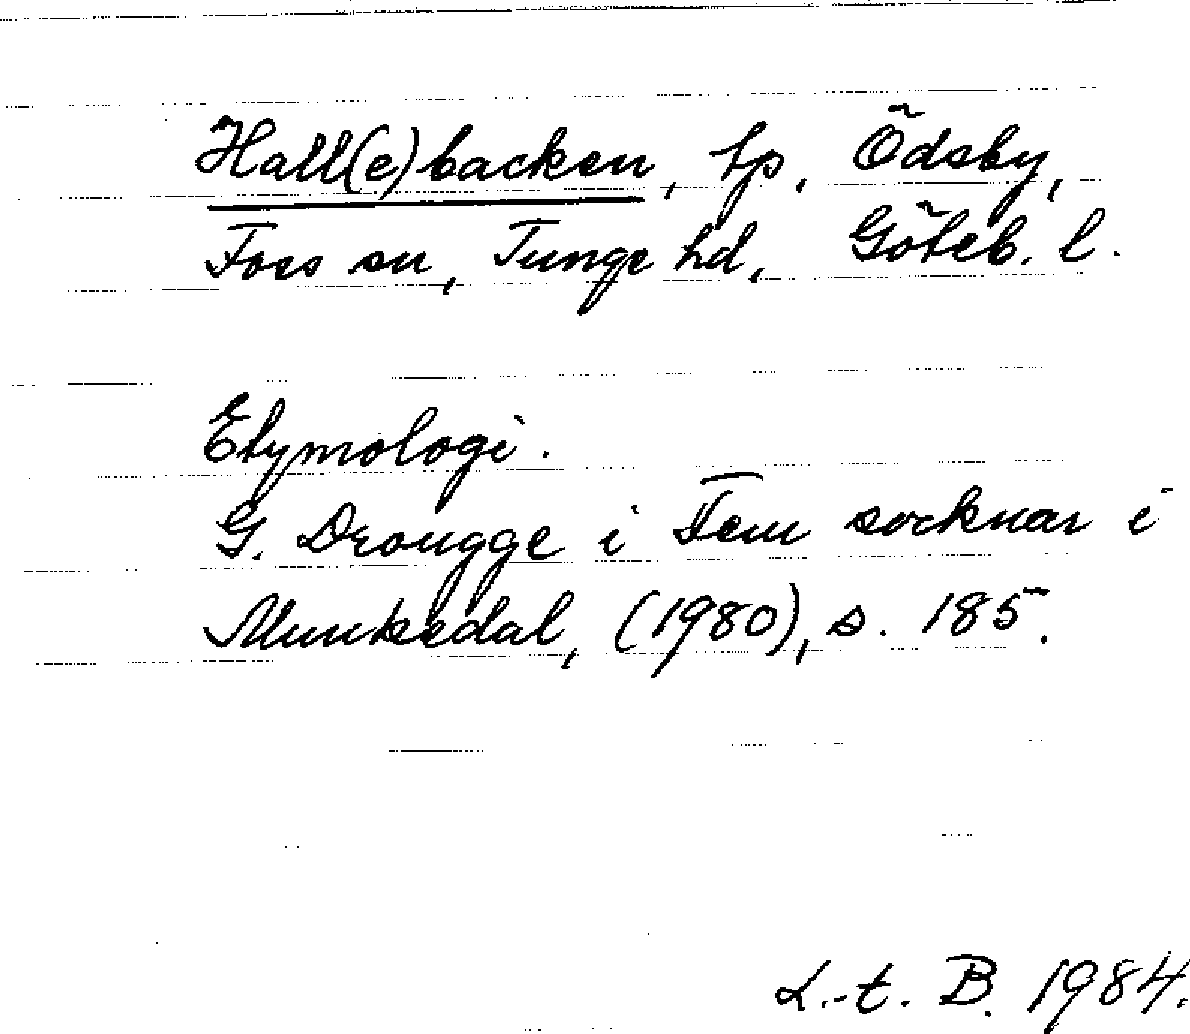 Hall(e)backen, tp, Ödsby,
Foss sn, Tunge hd, Göteb. l.
Etymologi.
G. Drougge i Fem socknar i
Munkedal, (1980), s. 185.
L.-t. B. 1984.